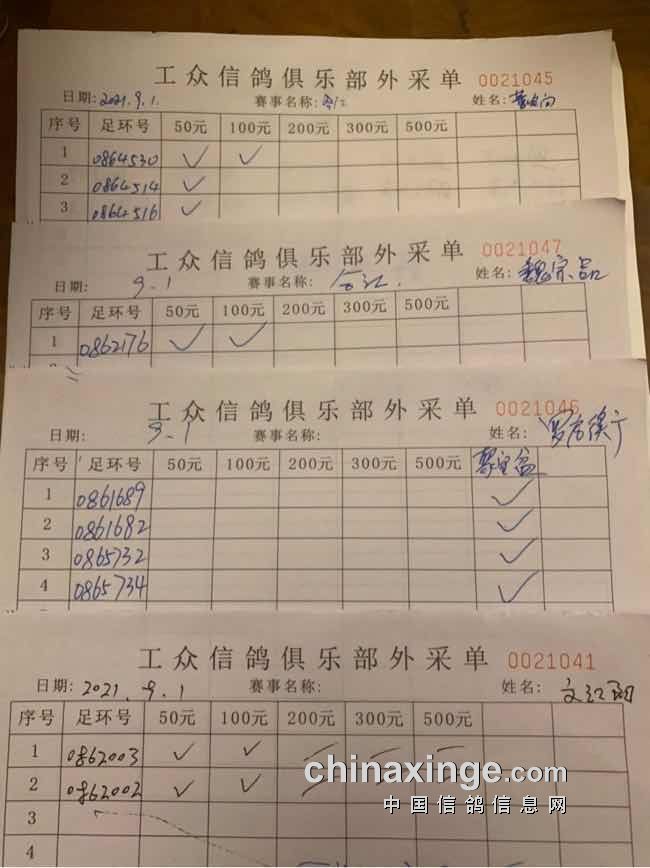 工众信鸽俱乐部外采单 0021045
日期: 2021.9.1. 赛事名称: 姓名:
序号 足环号 50元 100元 200元 300元 500元
1 0864530 ✓ ✓
2 0864514 ✓
3 0864516 ✓
工众信鸽俱乐部外采单 0021047
日期: 9.1 赛事名称: 合江. 姓名: 魏宗品
序号 足环号 50元 100元 200元 300元 500元
1 0862176 ✓ ✓
工众信鸽俱乐部外采单 0021046
日期: 9.1 赛事名称: 姓名:
序号 足环号 50元 100元 200元 300元 500元
1 0861689 ✓
2 0861682 ✓
3 0865732 ✓
4 0865734 ✓
工众信鸽俱乐部外采单 0021041
日期: 2021.9.1 赛事名称: 姓名:
序号 足环号 50元 100元 200元 300元 500元
1 0862003 ✓ ✓
2 0862002 ✓ ✓
3
4
chinaxinge.com
中国信鸽信息网